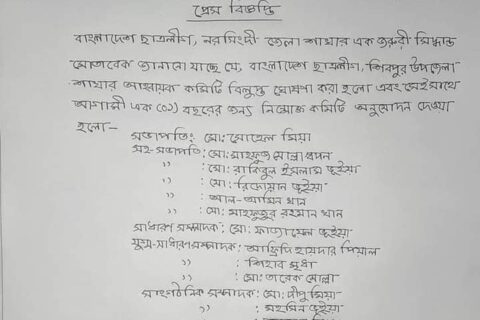 প্রেস বিজ্ঞপ্তি
বাংলাদেশ ছাত্রলীগ, নরসিংদী জেলা শাখার এক জরুরী সিদ্ধান্ত
মোতাবেক জানানো যাচ্ছে যে, বাংলাদেশ ছাত্রলীগ, শিবপুর উপজেলা
শাখার আহবায়ক কমিটি বিলুপ্ত ঘোষণা করা হলো এবং সেই সাথে
আগামী এক (০১) বছরের জন্য নিম্নোক্ত কমিটি অনুমোদন দেওয়া
হলো—
সভাপতি: মো: সোহেল মিয়া
সহ-সভাপতি: মো: মাহফুজ মোল্লা স্বপন
" : মো: রাকিবুল ইসলাম ভূইয়া
" : মো: রিদোয়ান ভূইয়া
" : আল-আমিন খান
" : মো: মাহফুজুর রহমান খান
সাধারণ সম্পাদক: মো: ফাজায়েল ভূইয়া
যুগ্ম-সাধারণ সম্পাদক: আফ্রিদি হায়দার পিয়াল
" : শিহাব মৃধা
" : মো: তারেক মোল্লা
সাংগঠনিক সম্পাদক: মো: দীপু মিয়া
" : মহসিন ভূইয়া